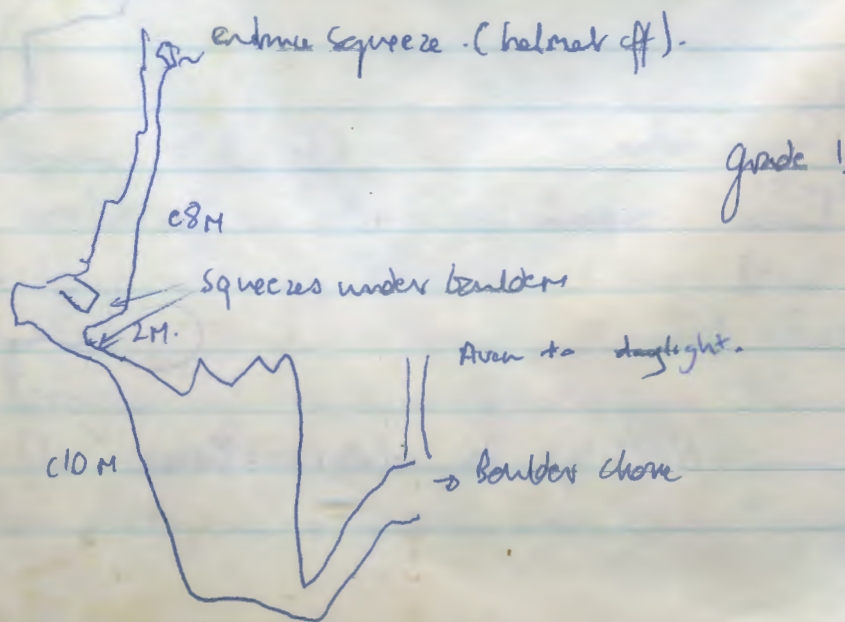 entrance squeeze. (helmet off).
Grade 1
c8M
Squeezes under boulders
2M.
Aven to daylight.
c10M
→ Boulder choke